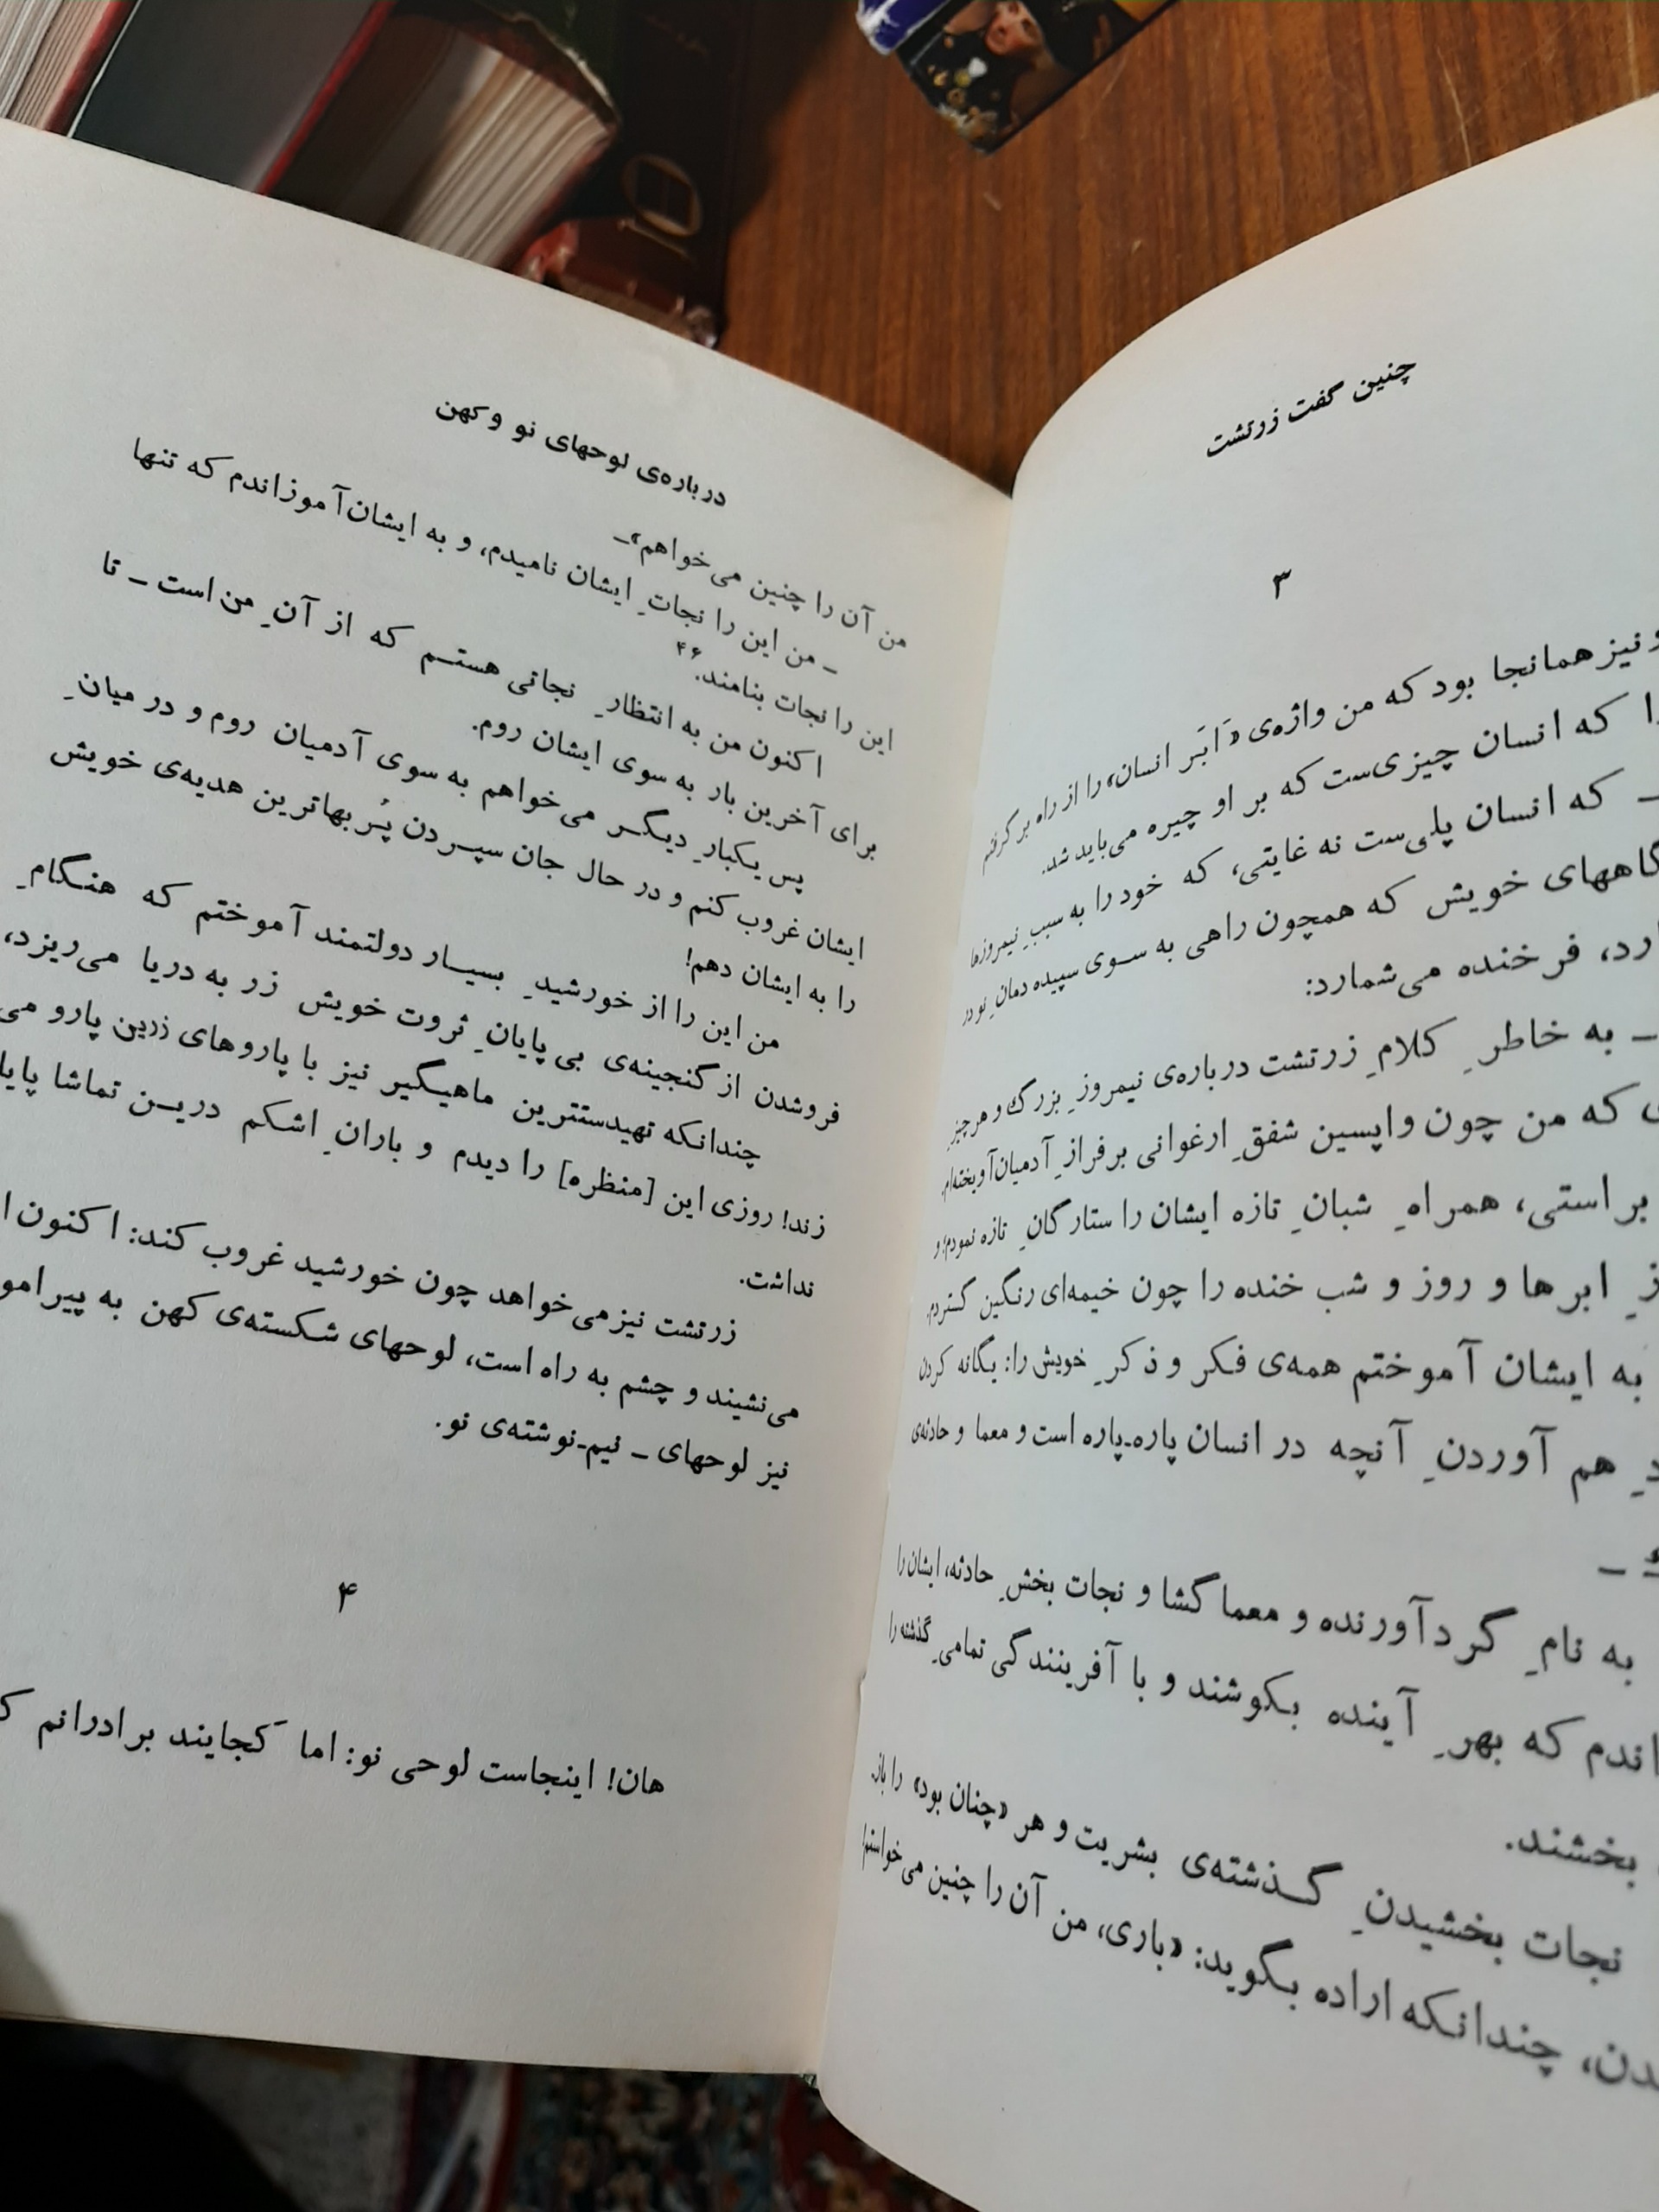 چنین گفت زرتشت
۳
و نیز همانجا بود که من واژه‌ی «اَبَر انسان» را از راه برگرفتم
را که انسان چیزی‌ست که بر او چیره می‌باید شد.
– که انسان پلی‌ست نه غایتی، که خود را به سببِ نیمروزها
گاههای خویش که همچون راهی به سوی سپیده دمانِ نو در
فرخنده می‌شمارد:
– به خاطرِ کلامِ زرتشت درباره‌ی نیمروزِ بزرگ و هر چیزِ
که من چون واپسین شفقِ ارغوانی بر فرازِ آدمیان آویخته‌ام.
براستی، همراهِ شبانِ تازه ایشان را ستارگانِ تازه نمودم؛ و
ابرها و روز و شب خنده را چون خیمه‌ای رنگین گستردم.
به ایشان آموختم همه‌ی فکر و ذکرِ خویش را: یگانه کردن
هم آوردنِ آنچه در انسان پاره‌ـ‌پاره است و معما و حادثه‌ی
–
به نامِ گردآورنده و معما گشا و نجات بخشِ حادثه، ایشان را
که بهرِ آینده بکوشند و با آفرینندگی تمامیِ گذشته را
بخشند.
نجات بخشیدنِ گذشته‌ی بشریت و هر «چنان بود» را باز
چندانکه اراده بگوید: «باری، من آن را چنین می‌خواستم!
درباره‌ی لوحهای نو و کهن
من آن را چنین می‌خواهم»–
– من این را نجاتِ ایشان نامیدم، و به ایشان آموزاندم که تنها
این را نجات بنامند.۴۶
اکنون من به انتظارِ نجاتی هستم که از آنِ من است – تا
برای آخرین بار به سوی ایشان روم.
پس یکبارِ دیگر می‌خواهم به سوی آدمیان روم و در میانِ
ایشان غروب کنم و در حال جان سپردن پُر بهاترین هدیه‌ی خویش
را به ایشان دهم!
من این را از خورشیدِ بسیار دولتمند آموختم که هنگامِ
فروشدن از گنجینه‌ی بی پایانِ ثروت خویش زر به دریا می‌ریزد،
چندانکه تهیدستترین ماهیگیر نیز با پاروهای زرین پارو می
زند! روزی این [منظره] را دیدم و بارانِ اشکم درین تماشا
نداشت.
زرتشت نیز می‌خواهد چون خورشید غروب کند: اکنون
می‌نشیند و چشم به راه است، لوحهای شکسته‌ی کهن به
نیز لوحهای – نیم‌ـ‌نوشته‌ی نو.
۴
هان! اینجاست لوحی نو: اما کَجایند برادرانم